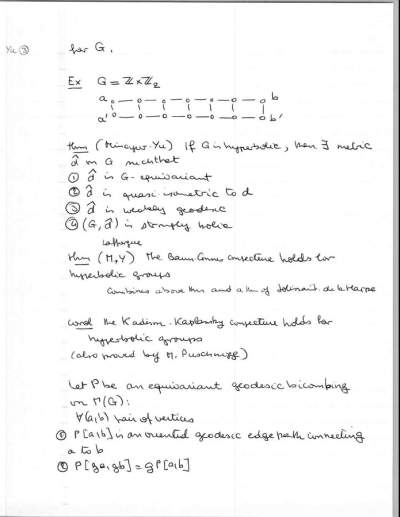 Yu ③
for G.
Ex G = ℤ×ℤ₂
a b
a' b'
thm (Mineyev-Yu) If G is hyperbolic, then ∃ metric
d̂ on G such that
① d̂ is G-equivariant
② d̂ is quasi-isometric to d
③ d̂ is weakly geodesic
④ (G, d̂) is strongly bolic
Lafforgue
thm (M,Y) The Baum-Connes conjecture holds for
hyperbolic groups
Combines above thm and a thm of Jolissaint, de la Harpe
corol the Kadison-Kaplansky conjecture holds for
hyperbolic groups
(also proved by M. Puschnigg)
Let P be an equivariant geodesic bicombing
on Γ(G):
∀(a,b) pair of vertices
① P[a,b] is an oriented geodesic edge path connecting
a to b
② P[ga,gb] = gP[a,b]